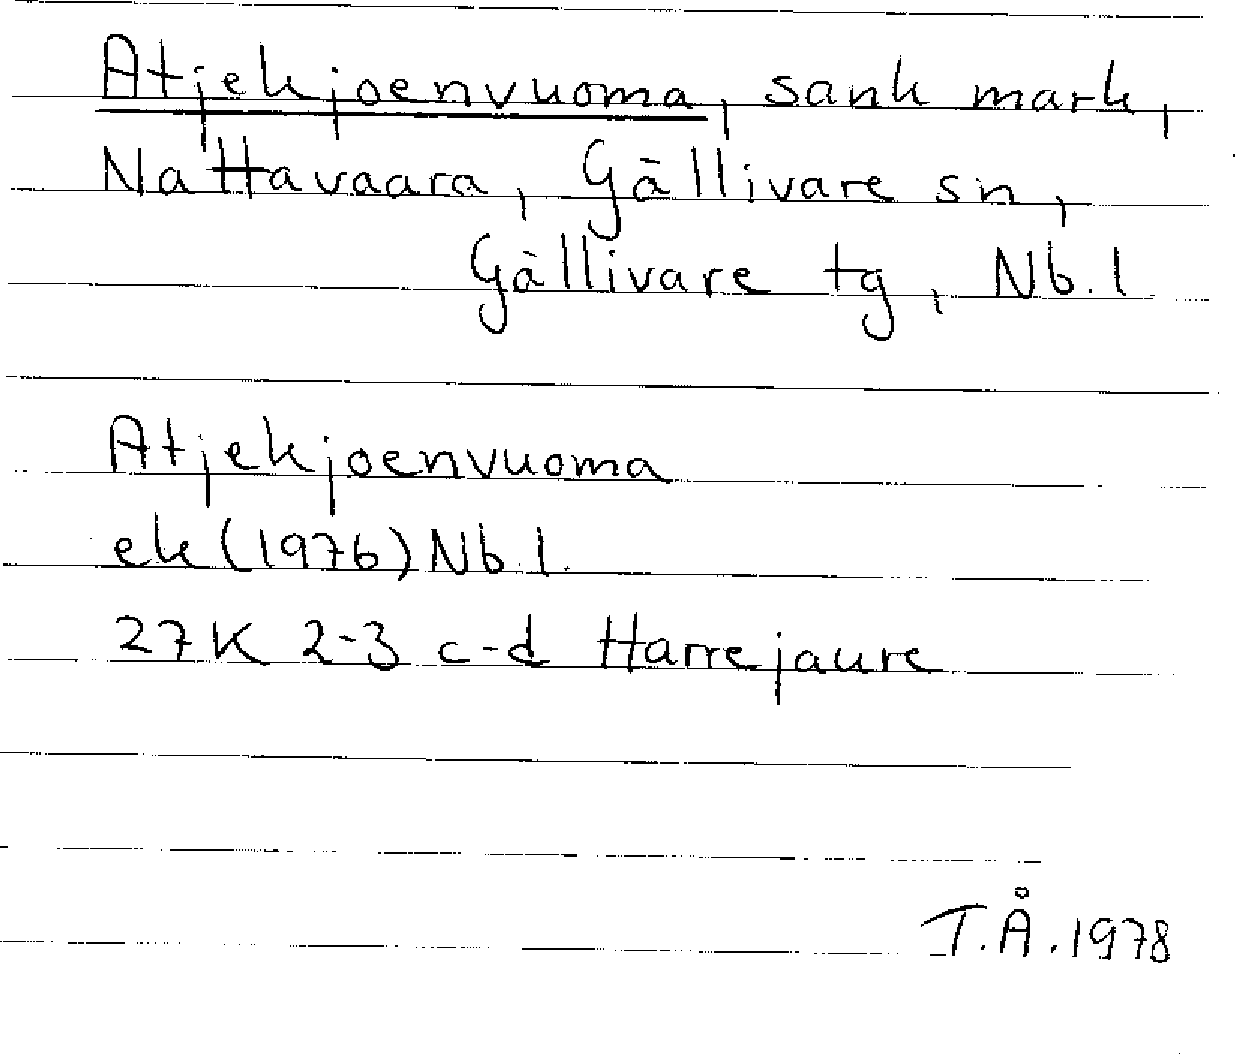 Atjekjoenvuoma, sank mark,
Nattavaara, Gällivare sn,
Gällivare tg, Nb.l
Atjekjoenvuoma
ek (1976) Nb.l.
27K 2-3 c-d Harrejaure
T.Å.1978